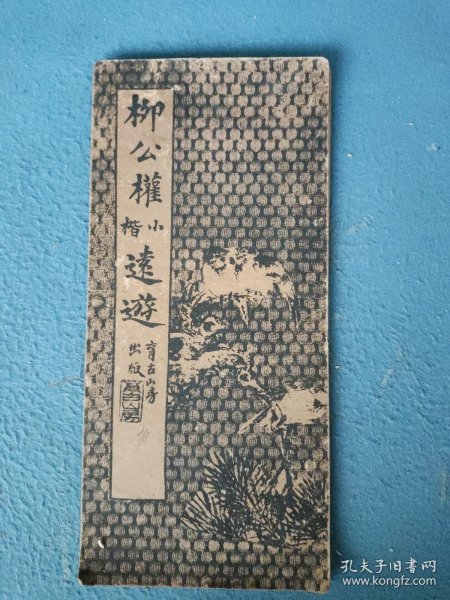 柳公權
小楷
遠遊
育古山房
出版
孔夫子旧书网
www.kongfz.com